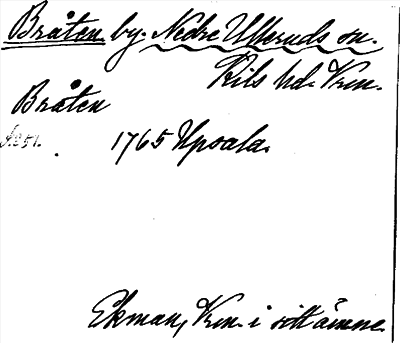 Bråten by. Nedre Ulleruds sn.
Kils hd. Vrm.
Bråten
s. 251.
1765 Upsala.
Ekman, Vrm. i sitt ämne